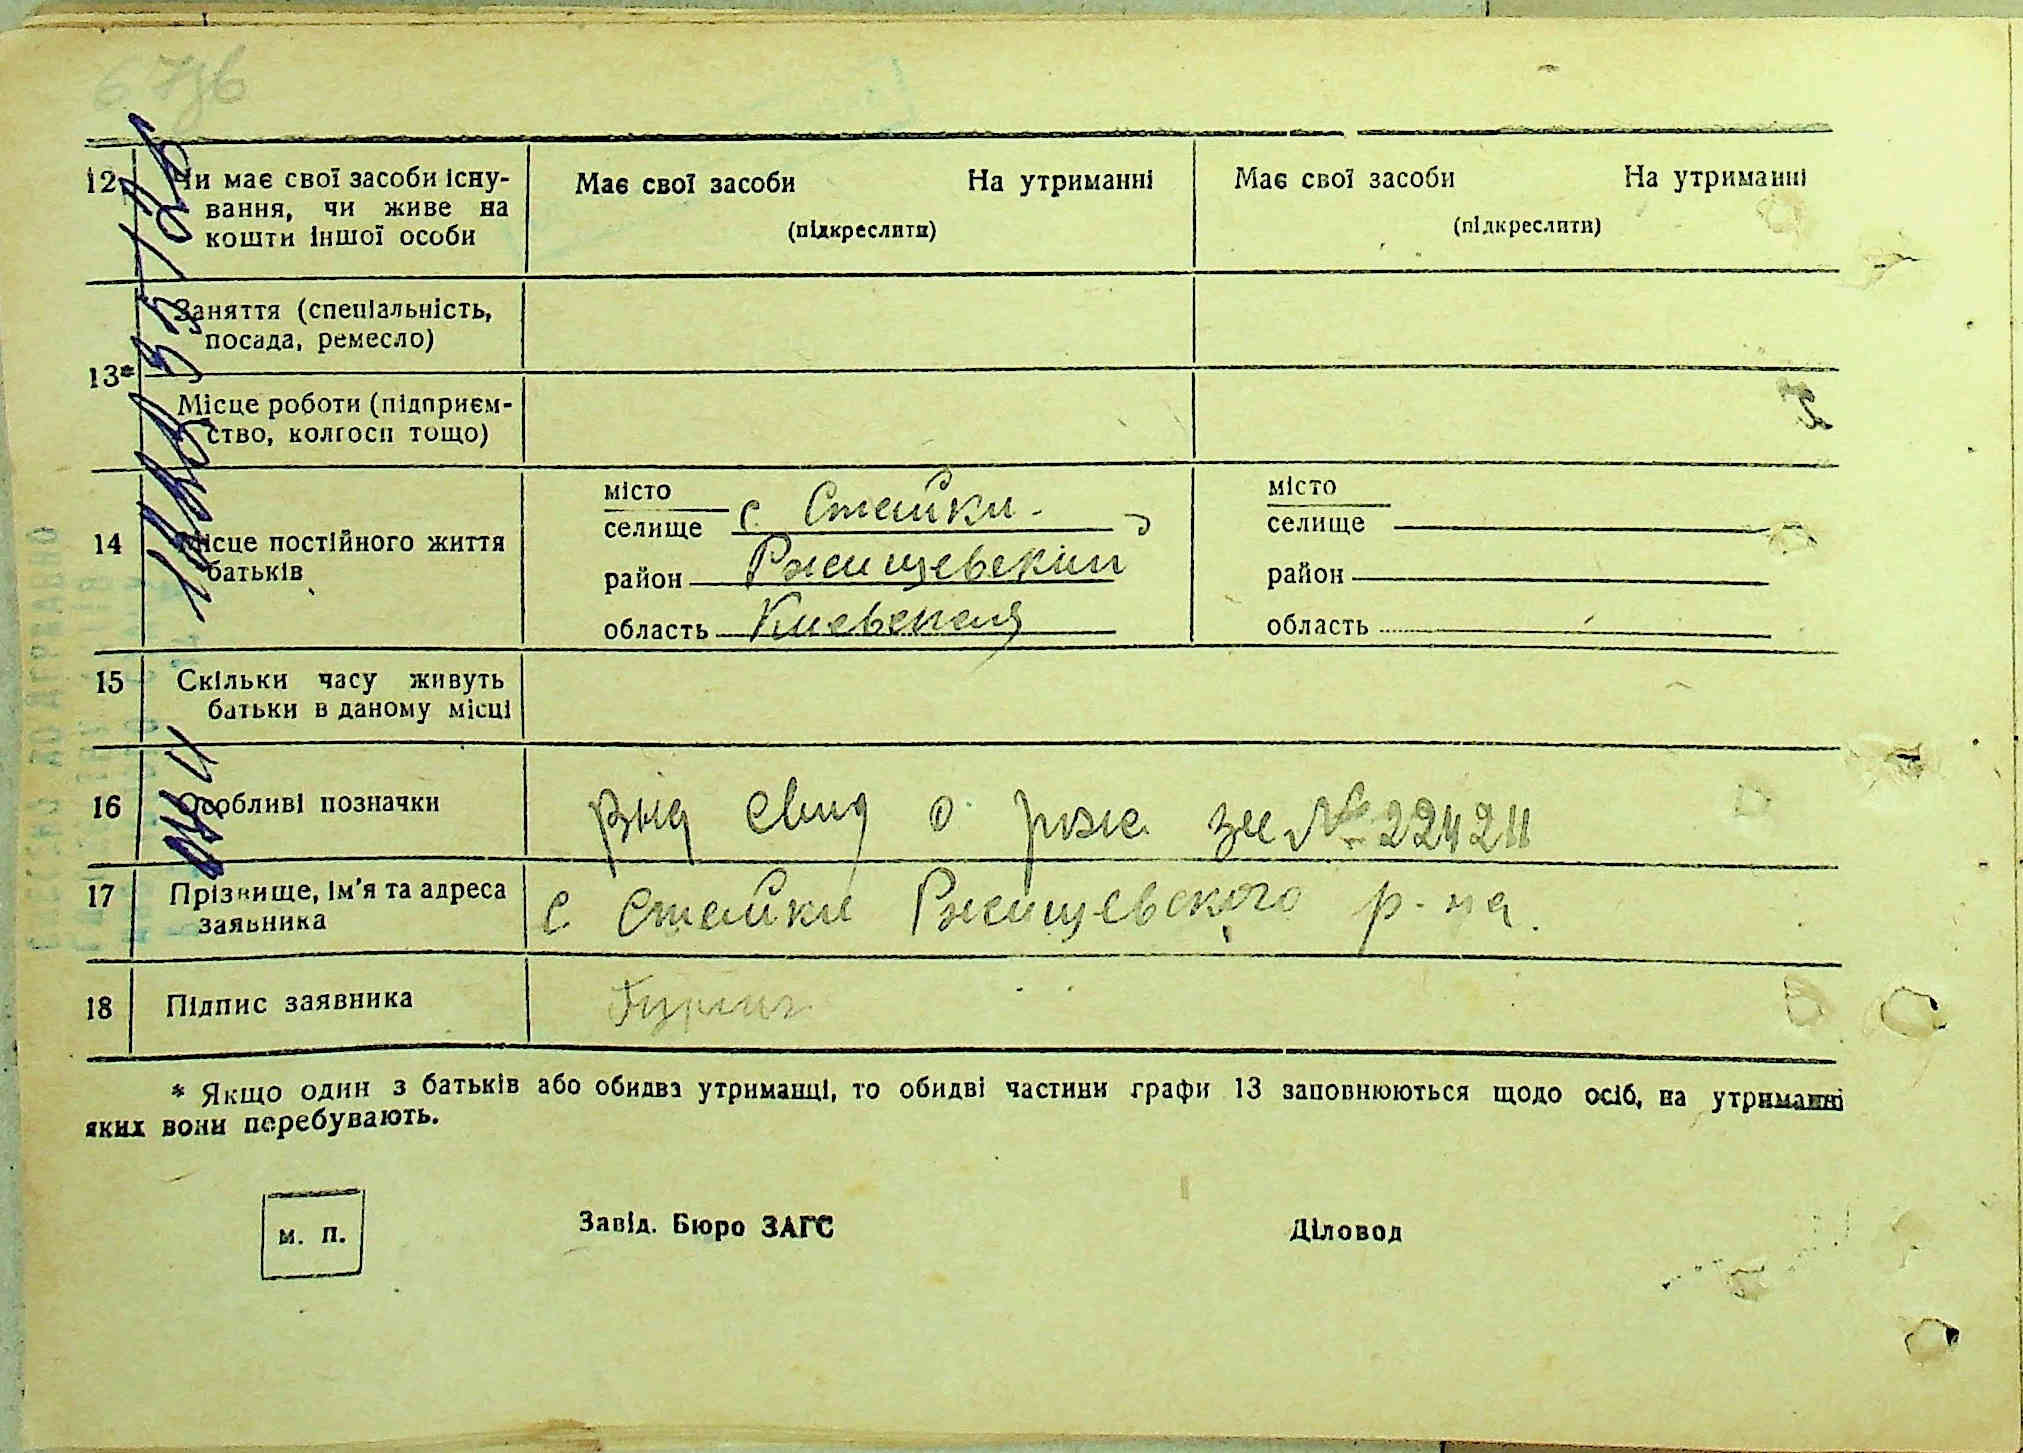 12
Чи має свої засоби існу-
вання, чи живе на
кошти іншої особи
Має свої засоби На утриманні
(підкреслити)
Має свої засоби На утриманні
(підкреслити)
13*
Заняття (спеціальність,
посада, ремесло)
Місце роботи (підприєм-
ство, колгосп тощо)
14
Місце постійного життя
батьків
місто
селище с Стайки
район Ржищевский
область Киевская
місто
селище
район
область
15
Скільки часу живуть
батьки в даному місці
16
Особливі позначки
свид о рож №
17
Прізвище, ім'я та адреса
заявника
с Стайки Ржищевского р-на.
18
Підпис заявника
* Якщо один з батьків або обидва утриманці, то обидві частини графи 13 заповнюються щодо осіб, на утриманні
яких вони перебувають.
м. п.
Завід. Бюро ЗАГС
Діловод